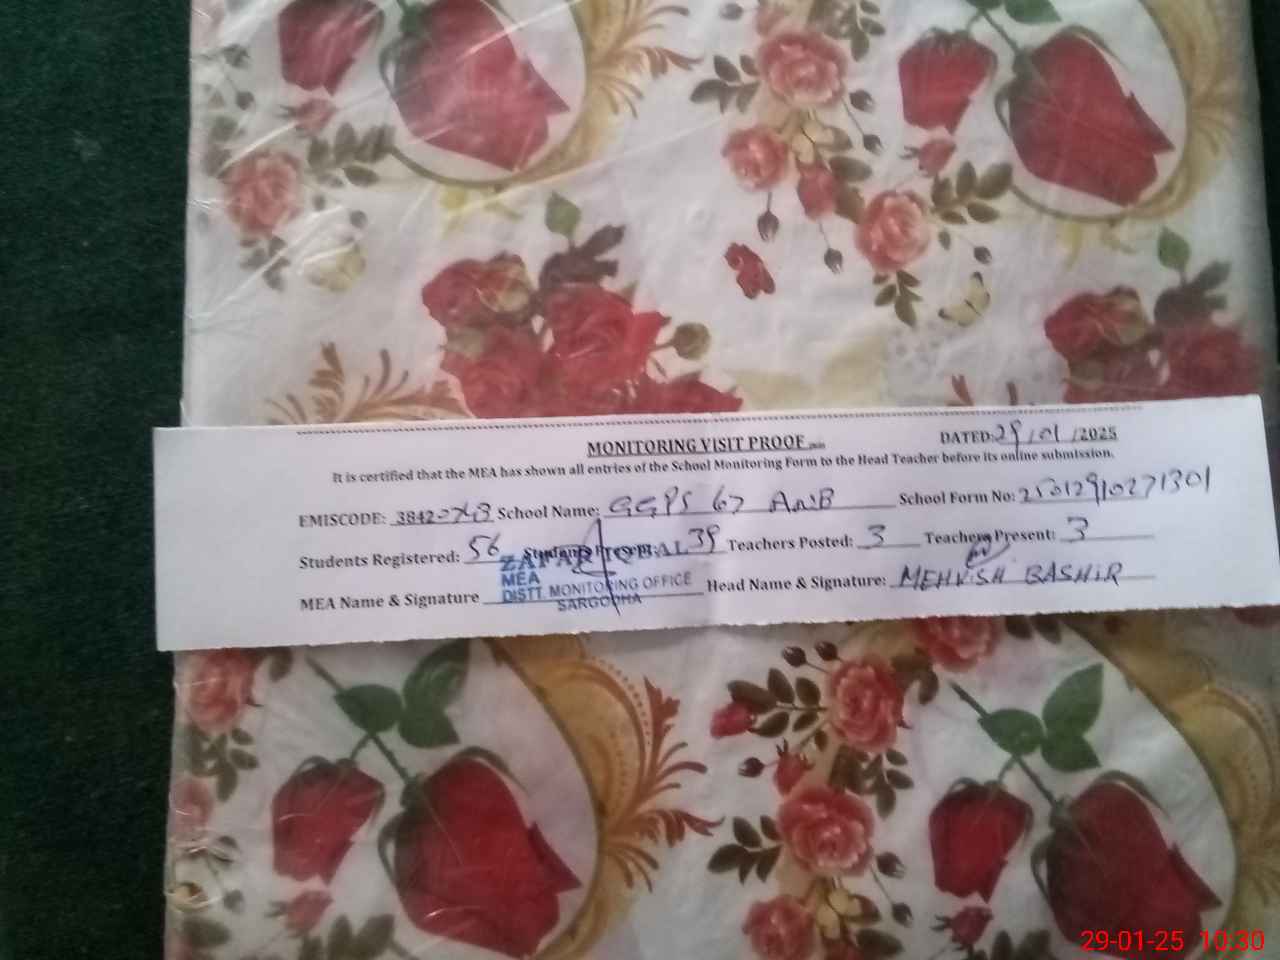 MONITORING VISIT PROOF
DATED: 29/01/2025
It is certified that the MEA has shown all entries of the School Monitoring Form to the Head Teacher before its online submission.
EMISCODE: School Name: GGPS 67 School Form No: 25012910271301
Students Registered: 56 Students Present: 39 Teachers Posted: 3 Teachers Present: 3
ZAFAR IQBAL
MEA
DISTT. MONITORING OFFICE
SARGODHA
MEA Name & Signature Head Name & Signature: MEHVISH BASHIR
29-01-25 10:30